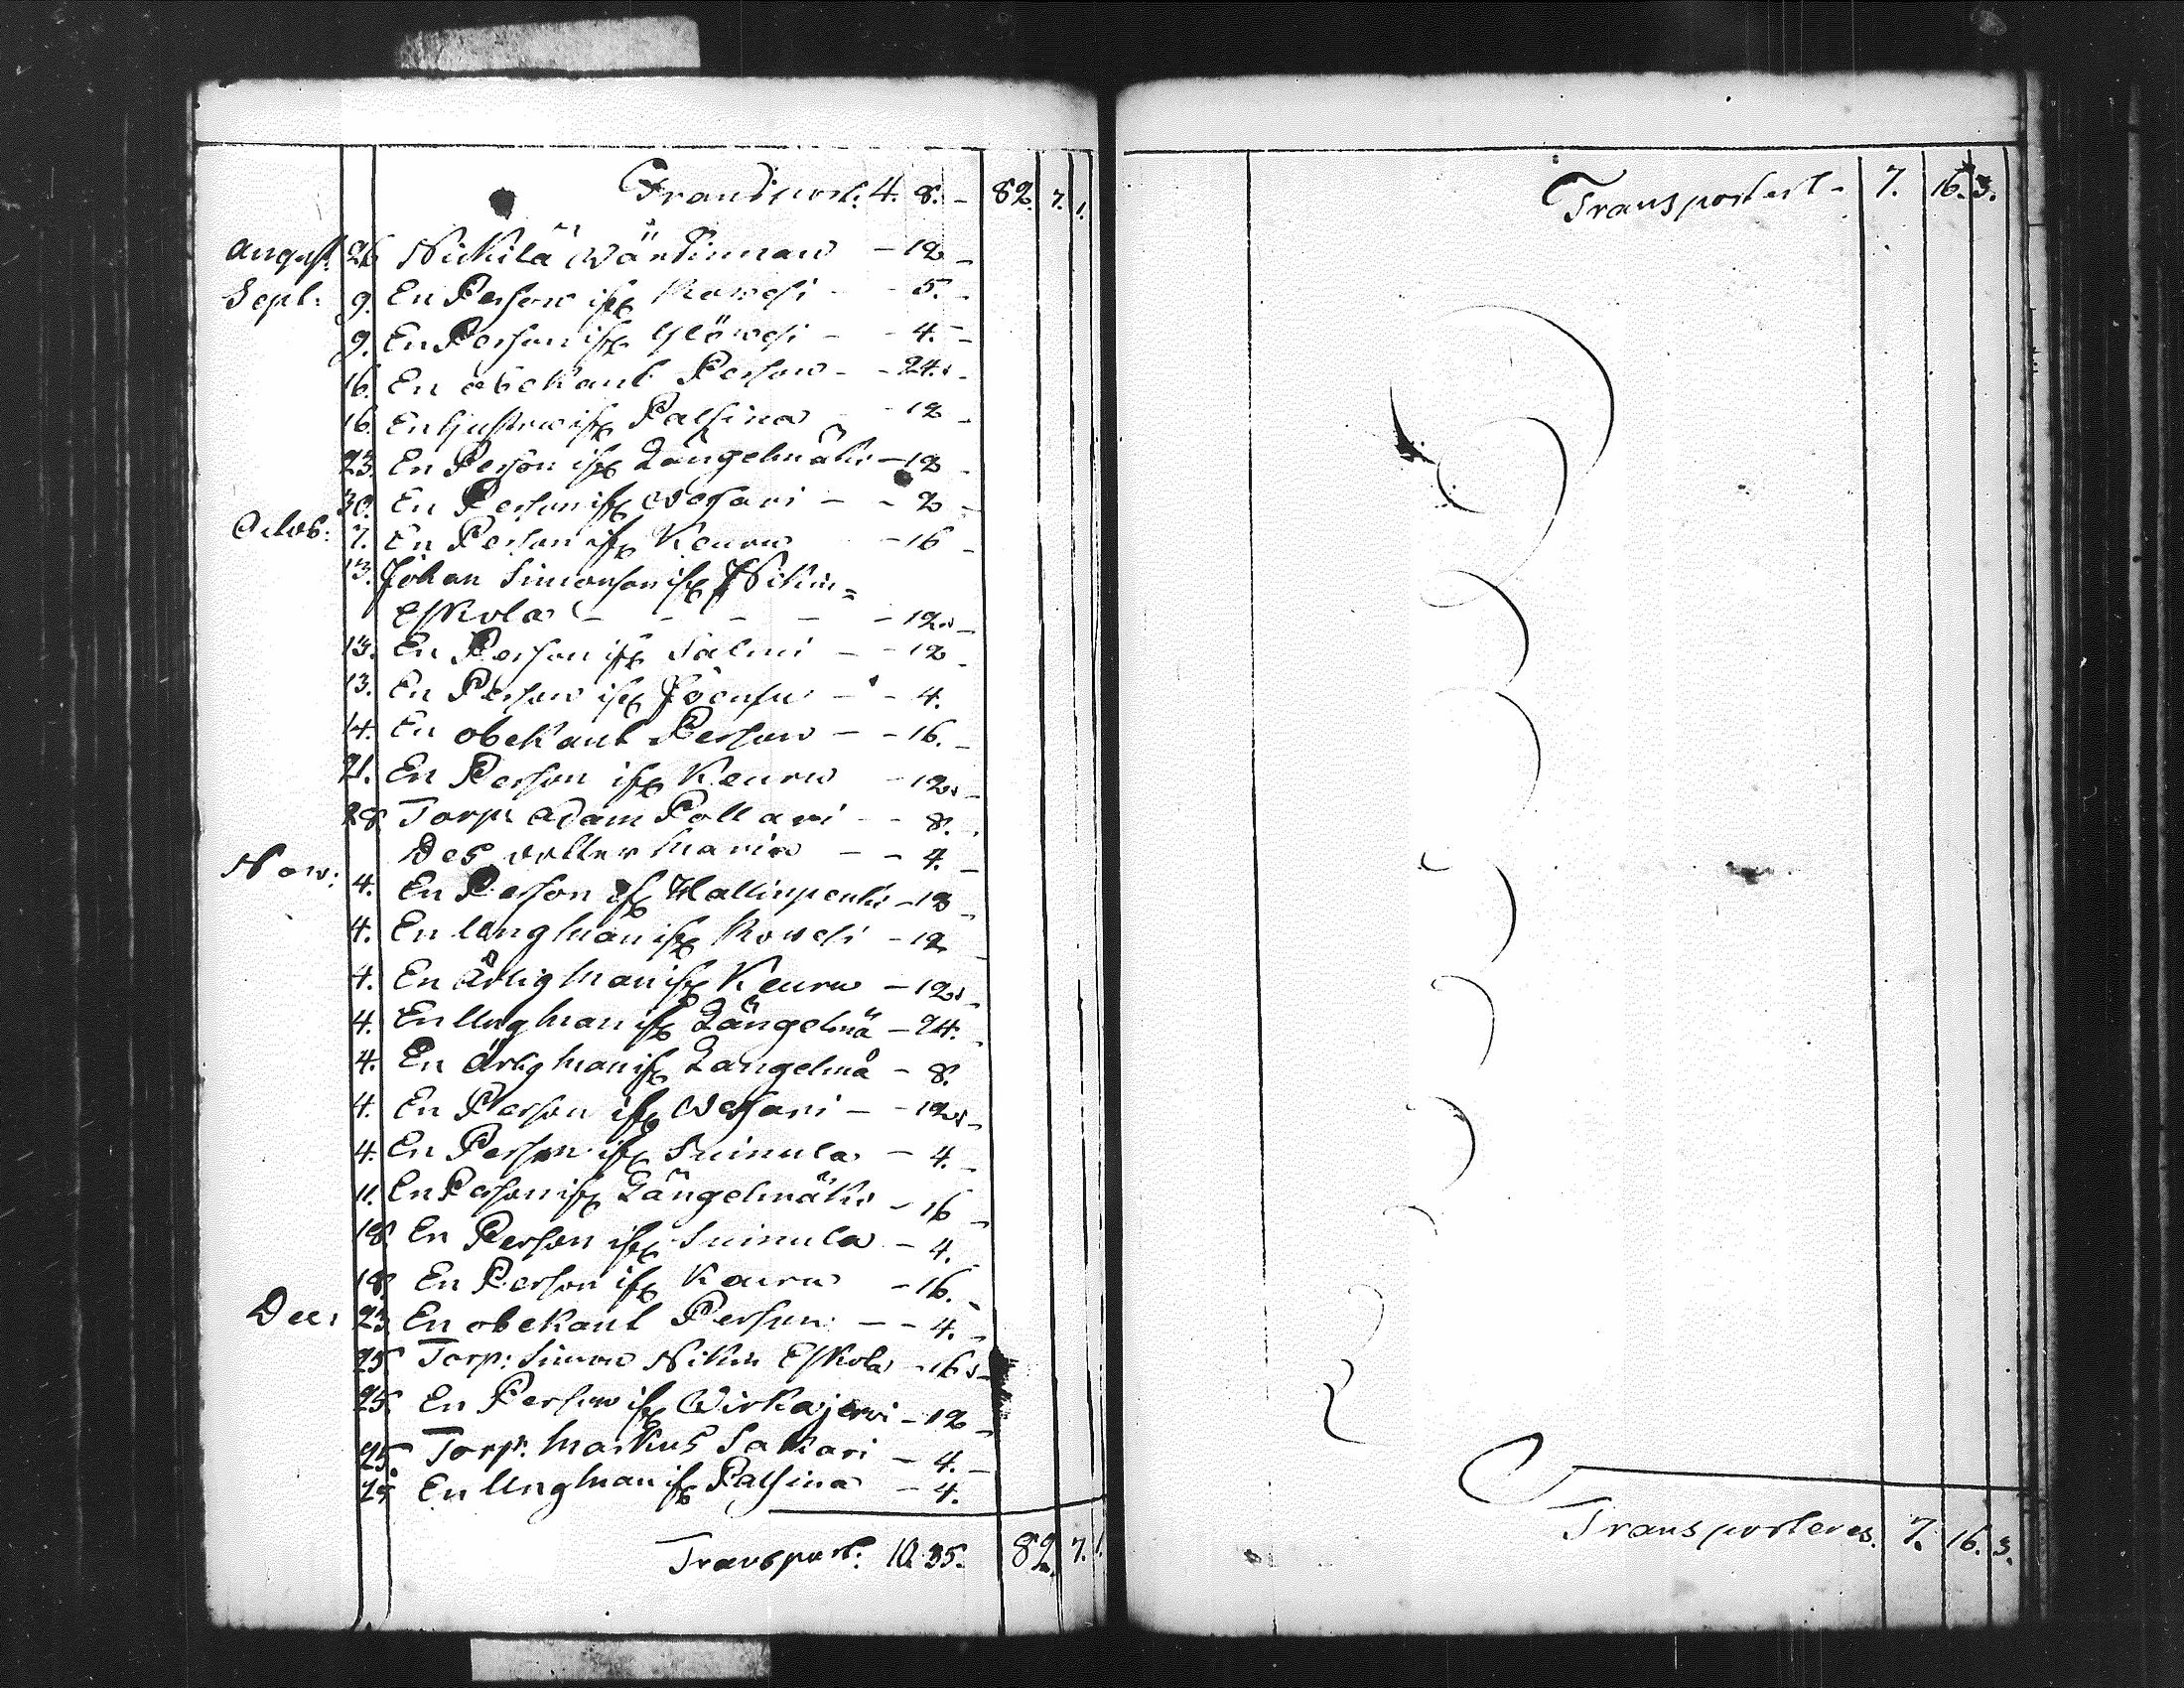 Transport. 4. 8. - 82. 7. 1.
August. 26 Nickilä Wäntinnan - 12 -
Sept: 9. En Person ifr Kowesi - - 5. -
9. En Person ifr Ylöwesi - - 4. -
16. En obekant Person - - 24. -
16. En Hustru ifr Palsina - 12 -
23. En Person ifr Längelmäki - 12 -
30. En Person ifr Wesari - - 2 -
Octob: 7. En Person ifr Keuru - 16 -
13. Johan Simonson ifr Nikin=
Eskola - - - - - 12. -
13. En Person ifr Salmi - - 12 -
13. En Person ifr - - 4.
14. En obekant Person - - 16. -
21. En Person ifr Keuru - 12. -
28 Torp: Adam Pollari - - 8. -
Des dotter Maria - - 4. -
Now: 4. En Person ifr Hallinpenki - 12 -
4. En Ung Man ifr Kowesi - 12 -
4. En ärlig Man ifr Keuru - 12. -
4. En Ung Man ifr Längelmä - 24. -
4. En ärlig Man ifr Langelmä - 8.
4. En Person ifr Wesari - - 12. -
4. En Person ifr Suinula - 4. -
11. En Person ifr Längelmäki - 16 -
18 En Person ifr Suinula - 4.
18. En Person ifr Keuru - 16. -
Dec: 23 En obekant Person - - 4. -
25 Torp: Simon Nikin Eskola - 16. -
25. En Person ifr Wirkajerwi - 12 -
25. Torp: Markus Sakari - 4. -
25 En Ung Man ifr Palsina - 4.
Transport. 10. 35. 82. 7. 1.
Transportert - 7. 16. 3.
Transporteres. 7. 16. 3.